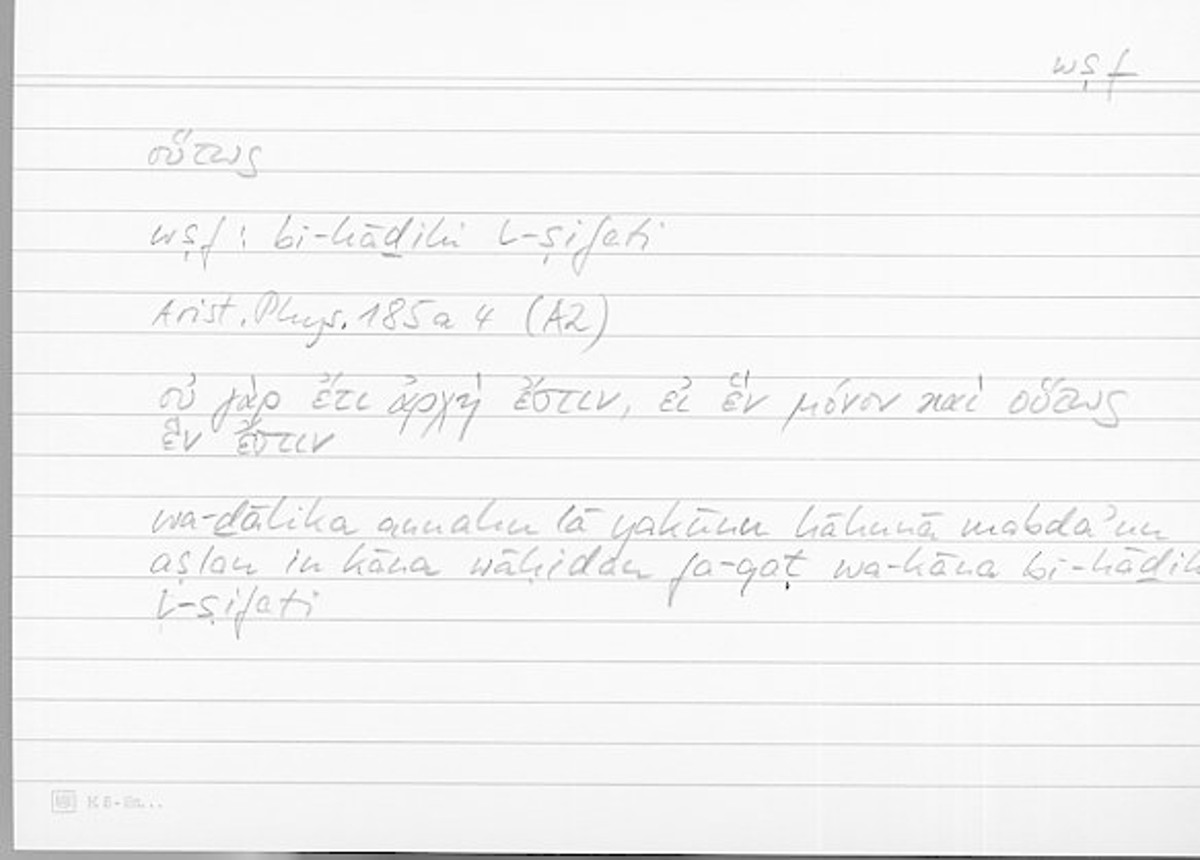 wṣf
οὕτως
wṣf: bi-hāḏihi l-ṣifati
Arist. Phys. 185 a 4 (A2)
οὐ γὰρ ἔτι ἀρχὴ ἔστιν, εἰ ἓν μόνον καὶ οὕτως
ἓν ἔστιν
wa-ḏālika annahu lā yakūnu hāhunā mabdaʾun
aṣlan in kāna wāḥidan fa-qaṭ wa-kāna bi-hāḏih
l-ṣifati